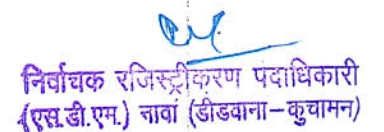 निर्वाचक रजिस्ट्रीकरण पदाधिकारी
(एस.डी.एम.) नावां (डीडवाना–कुचामन)